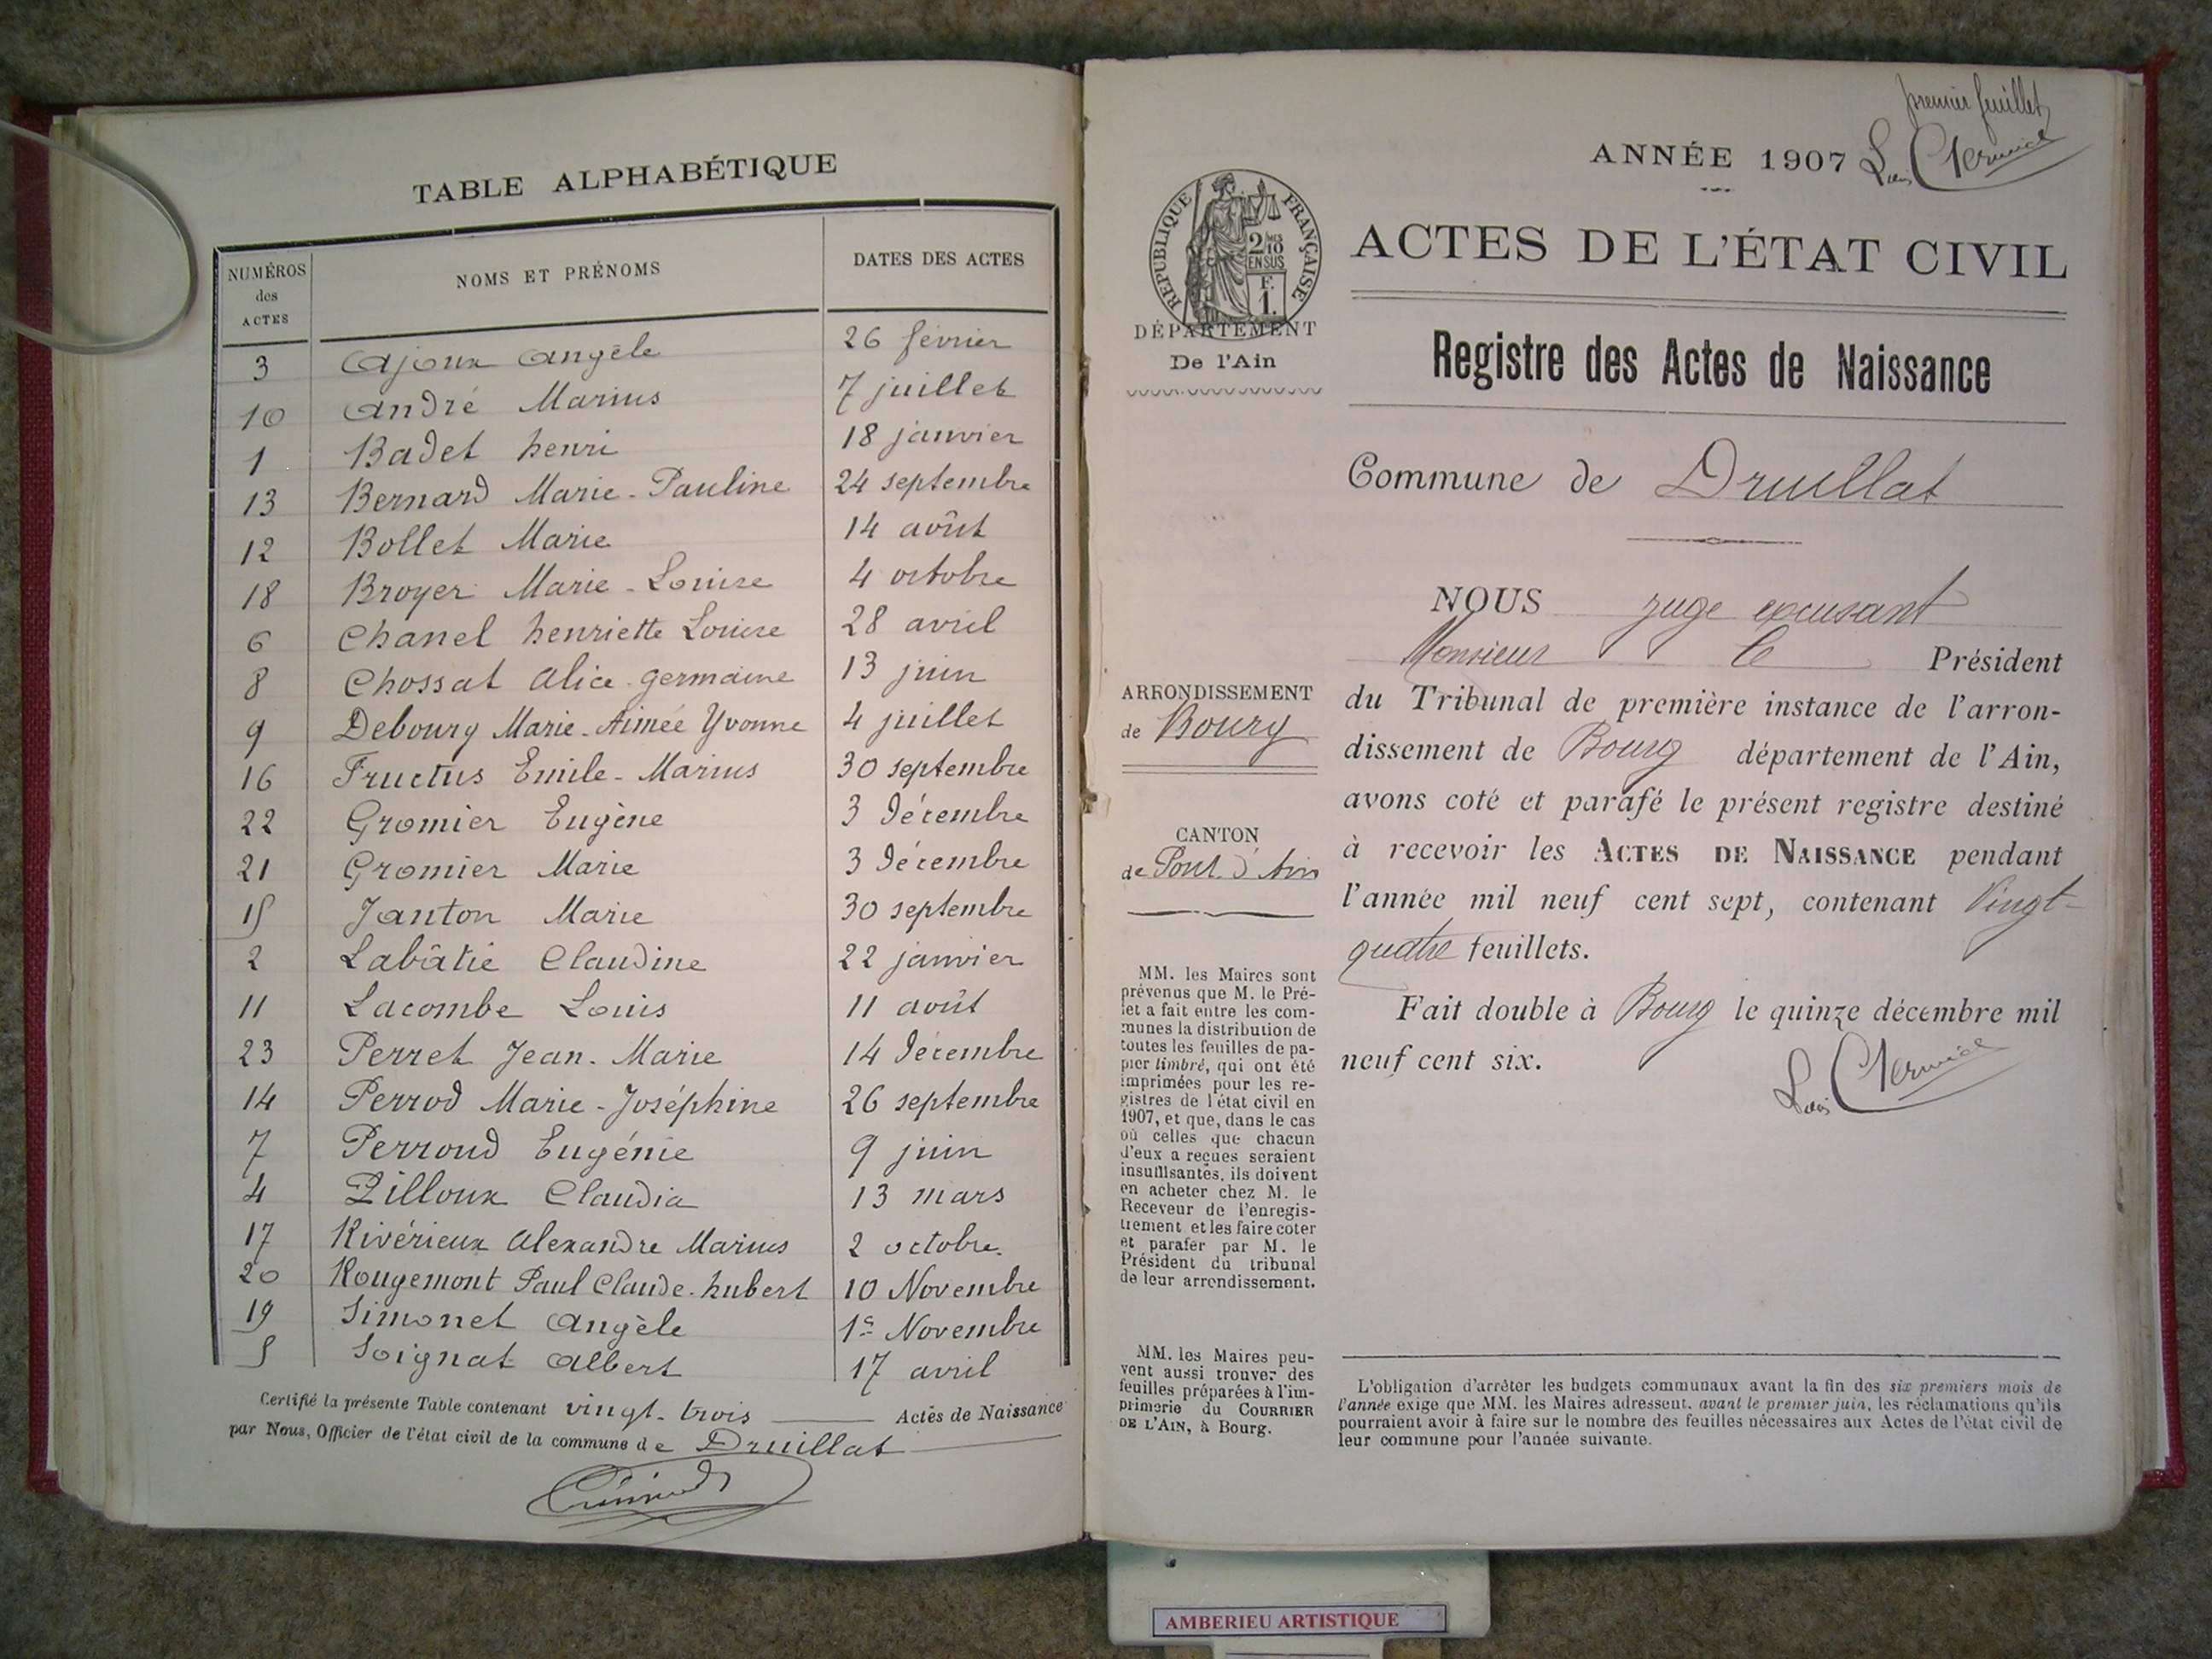 TABLE ALPHABÉTIQUE
NUMÉROS des ACTES NOMS ET PRÉNOMS DATES DES ACTES
3 Ajoux Angèle 26 février
10 André Marius 7 juillet
1 Badet henri 18 janvier
13 Bernard Marie-Pauline 24 septembre
12 Bollet Marie 14 août
18 Broyer Marie-Louise 4 octobre
6 Chanel henriette Louise 28 avril
8 Chossat Alice-germaine 13 juin
9 Debourg Marie-Aimée Yvonne 4 juillet
16 Fructus Emile-Marius 30 septembre
22 Gromier Eugène 3 décembre
21 Gromier Marie 3 décembre
15 Janton Marie 30 septembre
2 Labâtie Claudine 22 janvier
11 Lacombe Louis 11 août
23 Perret Jean-Marie 14 décembre
14 Perrod Marie-Joséphine 26 septembre
7 Perroud Eugénie 9 juin
4 Pilloux Claudia 13 mars
17 Rivérieux Alexandre Marius 2 octobre.
20 Rougemont Paul Claude-hubert 10 Novembre
19 Simonet Angèle 1er Novembre
5 Soignat Albert 17 avril
Certifié la présente Table contenant vingt-trois Actes de Naissance
par Nous, Officier de l'état civil de la commune de Druillat
premier feuillet
ANNÉE 1907
RÉPUBLIQUE FRANÇAISE
2 MES 10 EN SUS
F. 1.
ACTES DE L'ÉTAT CIVIL
DÉPARTEMENT
De l'Ain
Registre des Actes de Naissance
Commune de Druillat
NOUS juge excusant
Monsieur le Président
du Tribunal de première instance de l'arron-
dissement de Bourg département de l'Ain,
avons coté et parafé le présent registre destiné
à recevoir les ACTES DE NAISSANCE pendant
l'année mil neuf cent sept, contenant Vingt-
quatre feuillets.
Fait double à Bourg le quinze décembre mil
neuf cent six.
ARRONDISSEMENT
de Bourg
CANTON
de Pont d'Ain
MM. les Maires sont
prévenus que M. le Pré-
fet a fait entre les com-
munes la distribution de
toutes les feuilles de pa-
pier timbré, qui ont été
imprimées pour les re-
gistres de l'état civil en
1907, et que, dans le cas
où celles que chacun
d'eux a reçues seraient
insuffisantes, ils doivent
en acheter chez M. le
Receveur de l'enregis-
trement et les faire coter
et parafer par M. le
Président du tribunal
de leur arrondissement.
MM. les Maires peu-
vent aussi trouver des
feuilles préparées à l'im-
primerie du COURRIER
DE L'AIN, à Bourg.
L'obligation d'arrêter les budgets communaux avant la fin des six premiers mois de
l'année exige que MM. les Maires adressent, avant le premier juin, les réclamations qu'ils
pourraient avoir à faire sur le nombre des feuilles nécessaires aux Actes de l'état civil de
leur commune pour l'année suivante.
AMBERIEU ARTISTIQUE